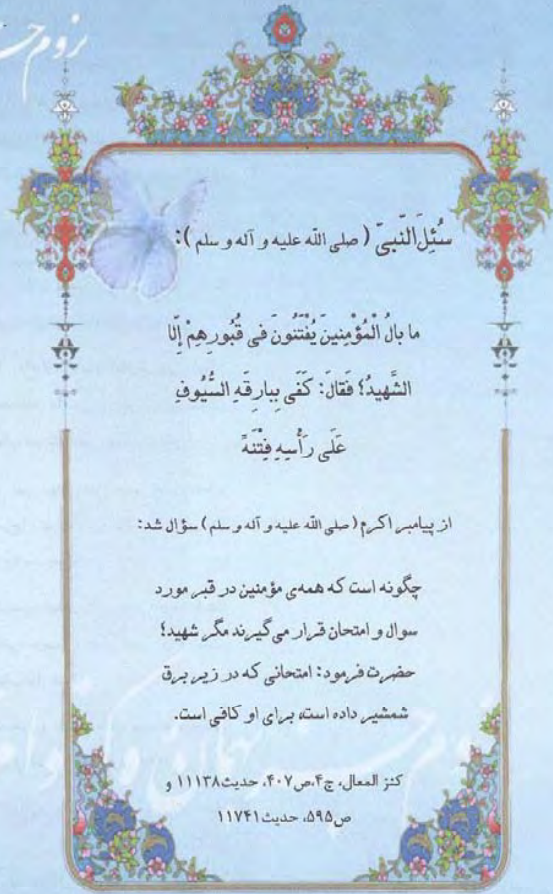 سُئِلَ النَّبیّ ( صلی الله علیه و آله و سلم ):
ما بالُ الْمُؤْمِنینَ یُفْتَنُونَ فی قُبُورِهِمْ إِلّا
الشَّهیدُ؟ فَقالَ: کَفَی بِبارِقَهِ السُّیُوفِ
عَلَی رَأْسِهِ فِتْنَهً
از پیامبر اکرم (صلی الله علیه و آله و سلم) سؤال شد:
چگونه است که همه‌ی مؤمنین در قبر مورد
سوال و امتحان قرار می‌گیرند مگر شهید؟
حضرت فرمود: امتحانی که در زیر برق
شمشیر داده است، برای او کافی است.
کنز المعال، ج۴،ص۴۰۷، حدیث۱۱۱۳۸ و
ص۵۹۵، حدیث۱۱۷۴۱